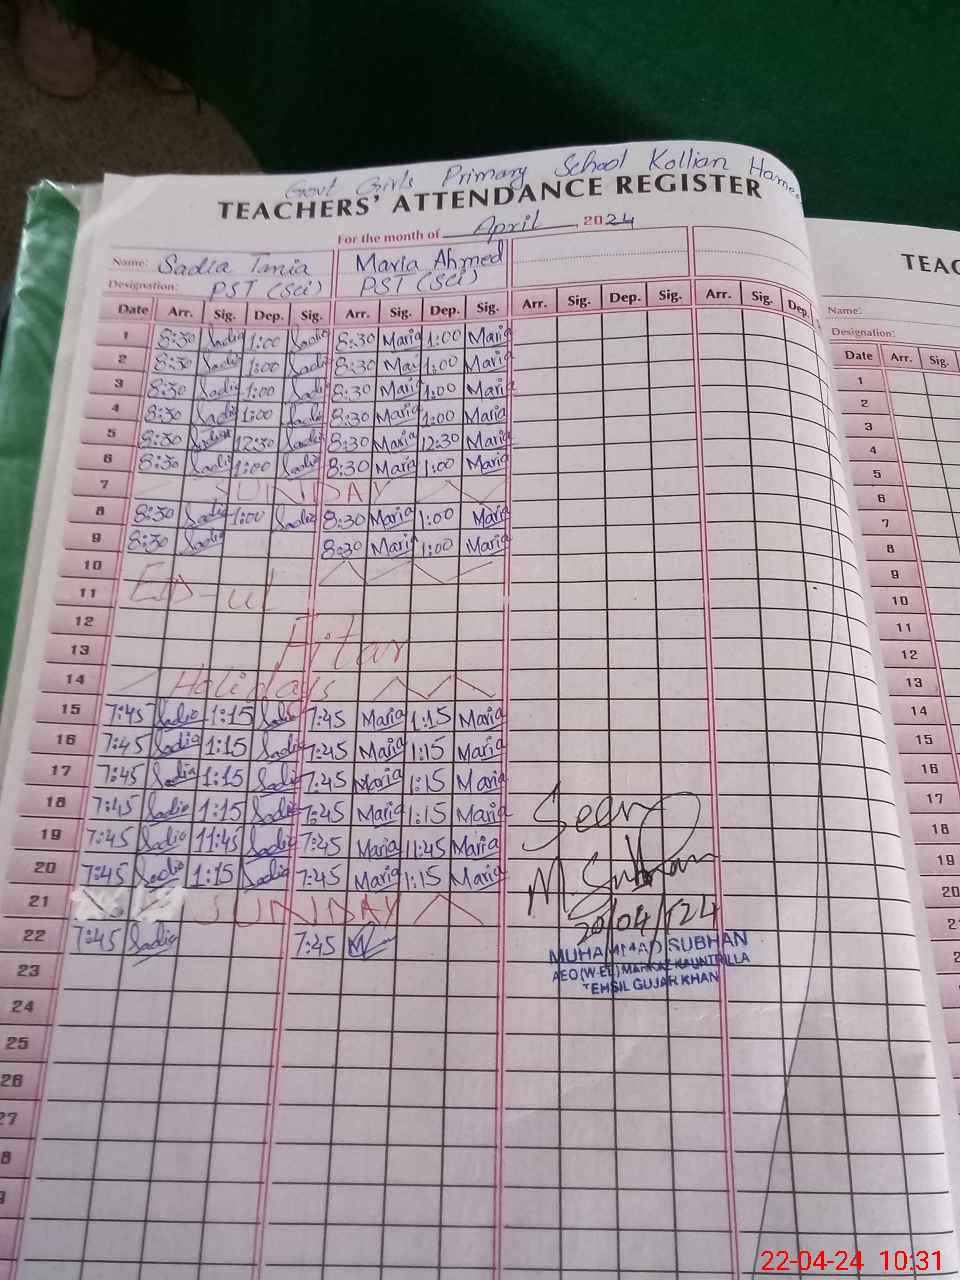 Govt Girls Primary School Kollian Hame
TEACHERS' ATTENDANCE REGISTER
For the month of April, 2024
Name: Sadia Tania Maria Ahmed
Designation: PST (Sci) PST (Sci)
Date Arr. Sig. Dep. Sig. Arr. Sig. Dep. Sig. Arr. Sig. Dep. Sig. Arr. Sig. Dep.
1 8:30 Sadia 1:00 Sadia 8:30 Maria 1:00 Maria
2 8:30 Sadia 1:00 Sadia 8:30 Maria 1:00 Maria
3 8:30 Sadia 1:00 Sadia 8:30 Maria 1:00 Maria
4 8:30 Sadia 1:00 Sadia 8:30 Maria 1:00 Maria
5 8:30 Sadia 12:30 Sadia 8:30 Maria 12:30 Maria
6 8:30 Sadia 1:00 Sadia 8:30 Maria 1:00 Maria
7 SUNDAY
8 8:30 Sadia 1:00 Sadia 8:30 Maria 1:00 Maria
9 8:30 Sadia 8:30 Maria 1:00 Maria
10
11 EID-ul
12
13 Fitar
14 Holidays
15 7:45 Sadia 1:15 Sadia 7:45 Maria 1:15 Maria
16 7:45 Sadia 1:15 Sadia 7:45 Maria 1:15 Maria
17 7:45 Sadia 1:15 Sadia 7:45 Maria 1:15 Maria
18 7:45 Sadia 1:15 Sadia 7:45 Maria 1:15 Maria
19 7:45 Sadia 11:45 Sadia 7:45 Maria 11:45 Maria
20 7:45 Sadia 1:15 Sadia 7:45 Maria 1:15 Maria
21 SUNDAY
22 7:45 Sadia 7:45
23
24
25
26
27
8
9
Seen
M. Subhan
20/04/24
MUHAMMAD SUBHAN
AEO (W-EE) MARKAZ KAUNTRILLA
TEHSIL GUJAR KHAN
TEAC
Name:
Designation:
Date Arr. Sig.
1
2
3
4
5
6
7
8
9
10
11
12
13
14
15
16
17
18
19
20
2
2
22-04-24 10:31